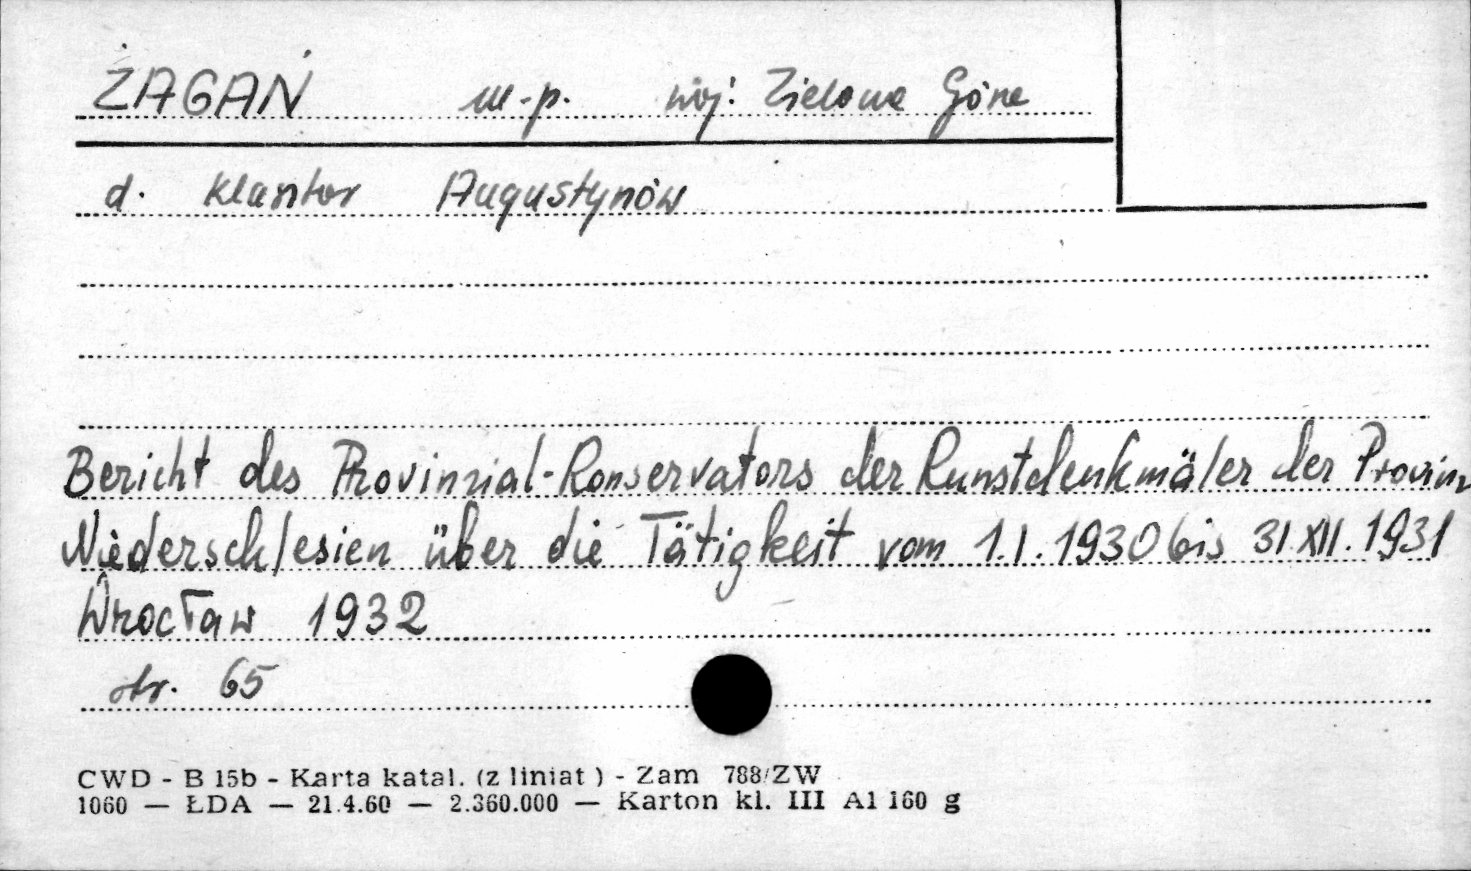 ŻAGAŃ m-p. woj: Zielona Góra
d. klasztor Augustynów
Bericht des Provinzial-Konservators der Kunstdenkmäler der Provinz
Niederschlesien über die Tätigkeit vom 1.I.1930 bis 31.XII.1931
Wrocław 1932
str. 65
CWD - B 15b - Karta katal. (z liniat ) - Zam 788/ZW
1060 — ŁDA — 21.4.60 — 2.360.000 — Karton kl. III A1 160 g